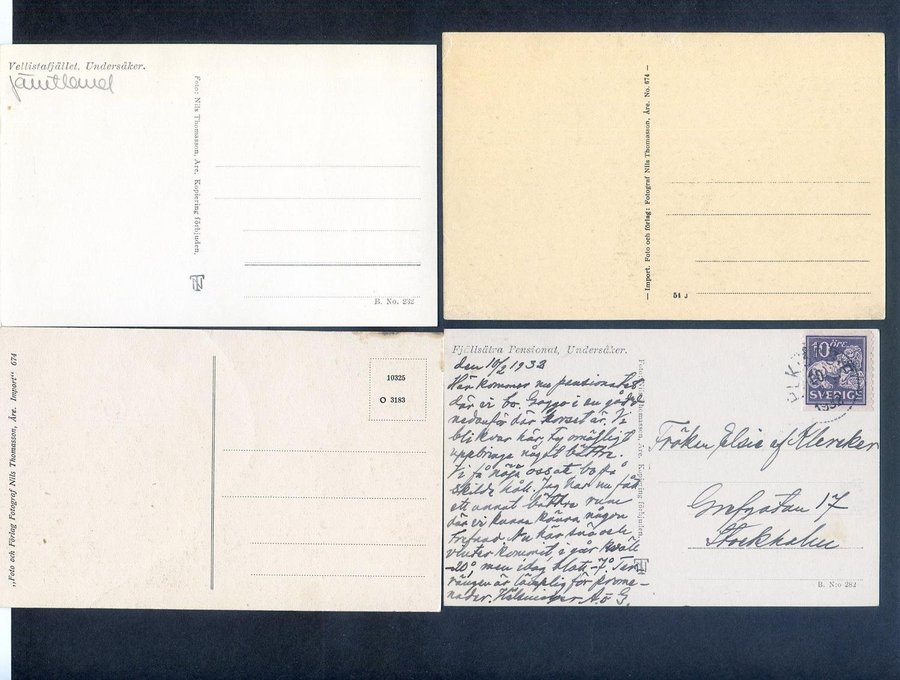 Vellistafjället, Undersåker.
Jämtland
Foto: Nils Thomasson, Åre. Kopiering förbjuden.
NT
B. No. 232
— Import. Foto och förlag: Fotograf Nils Thomasson, Åre. No. 674 —
54 J
„Foto och Förlag Fotograf Nils Thomasson, Åre. Import“ 674
10325
O 3183
Fjällsätra Pensionat, Undersåker.
den 10/2 1933
Här kommer nu pensionatet
där vi bo. Goggo i en gård
nedanför där korset är. Vi
bli kvar här, ty omöjligt
uppbringa något bättre.
Vi få nöja oss att bo på
skilda håll. Jag har nu fått
ett annat bättre rum
där vi kunna känna någon
trifnad. Nu här snö och
vinter kommit i går kväll
-20° men idag blott -7°. Ter-
rängen är lämplig för prome-
nader. Hälsningar A. o G.
Foto: Nils Thomasson, Åre. Kopiering förbjuden.
NT
10 ÖRE
SVERIGE
Fröken Elsie af Klercker
Grefgatan 17
Stockholm
B. N:o 282